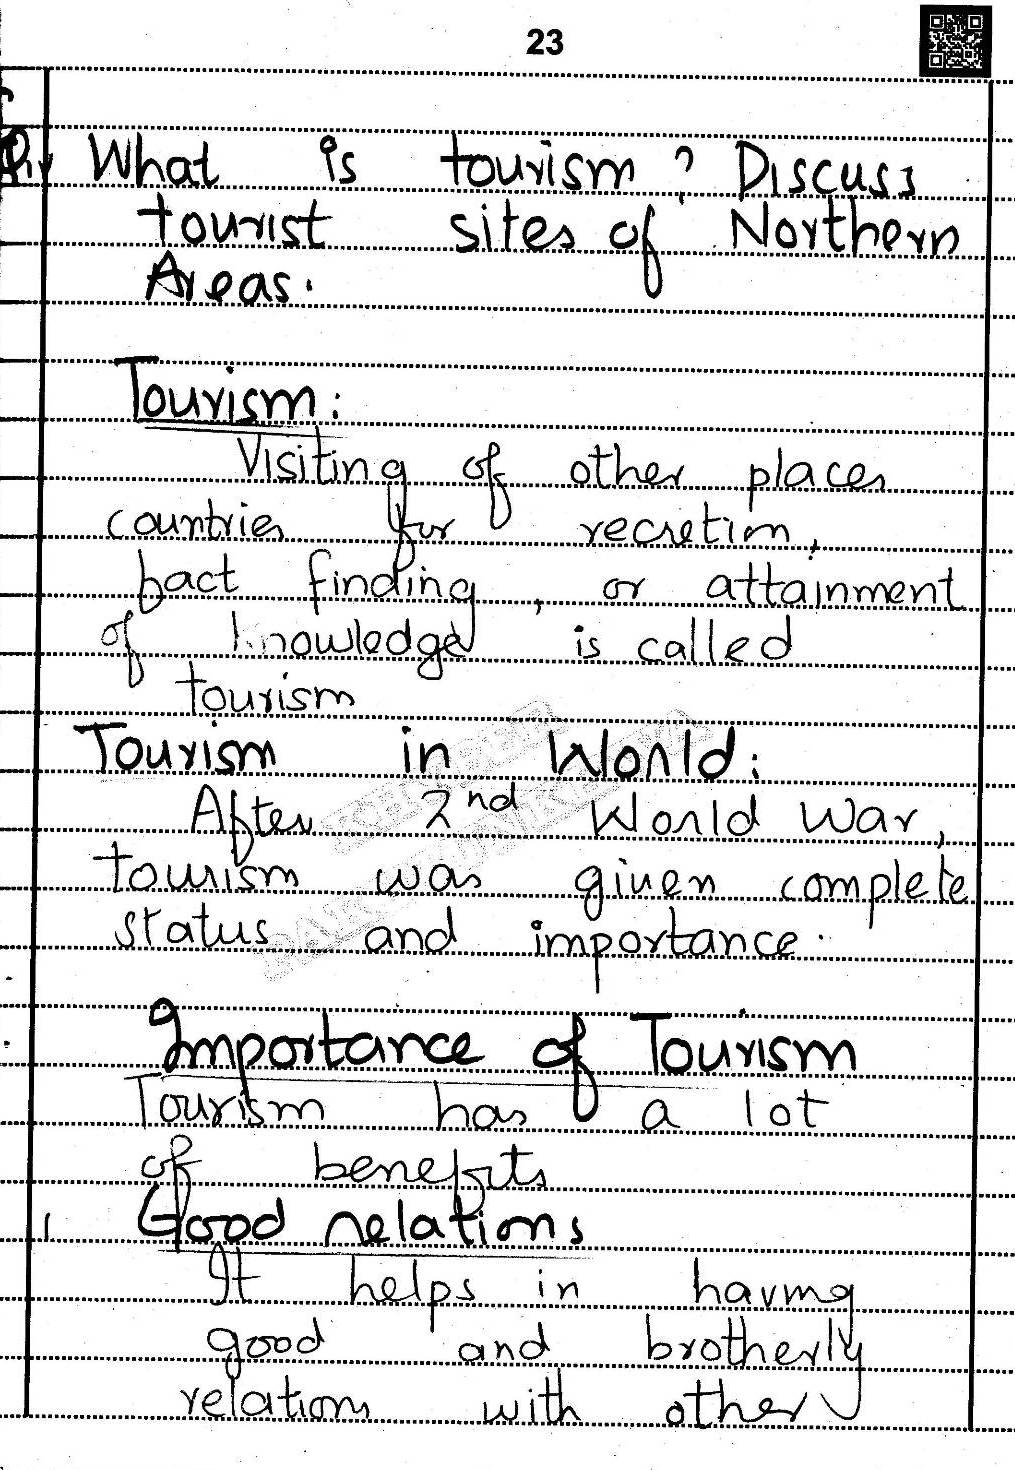 23
Q. What is tourism? Discuss
tourist sites of Northern
Areas.
Tourism:
Visiting of other places
countries for recretion,
fact finding, or attainment
of knowledge is called
tourism
Tourism in World:
After 2nd World War,
tourism was given complete
status and importance.
Importance of Tourism
Tourism has a lot
of benefits
1 Good relations
It helps in having
good and brotherly
relations with other